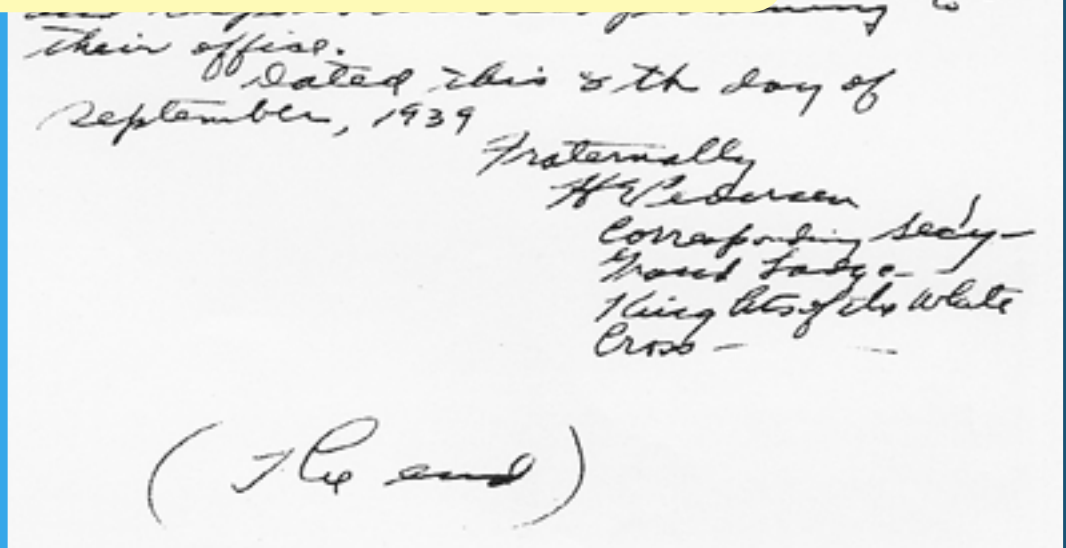 their office.
Dated this 8th day of
September, 1939
Fraternally
H E Pedersen
Corresponding Sec'y-
Grand Lodge-
Knights of the White
Cross-
(The end)